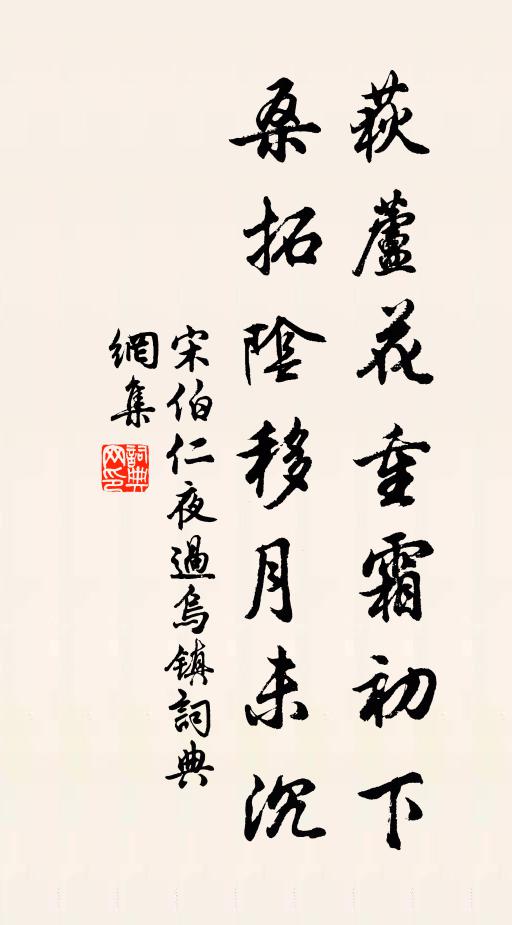 荻蘆花重霜初下
桑拓陰移月未沉
宋伯仁夜過烏鎮詞典
網集
詞典
網印